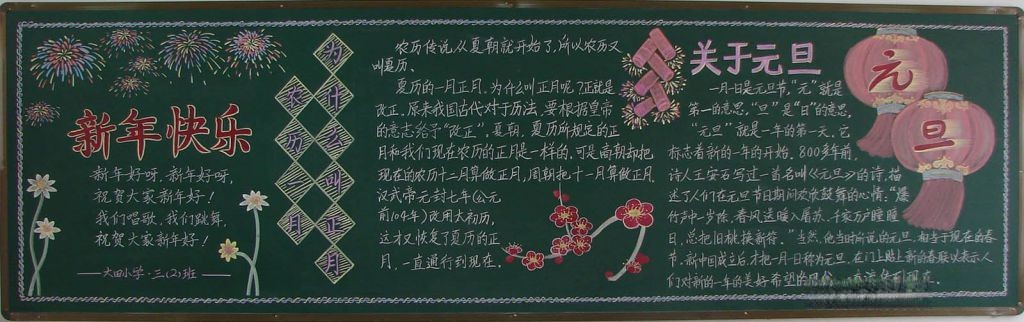 新年快乐
新年好呀，新年好呀，
祝贺大家新年好！
我们唱歌，我们跳舞，
祝贺大家新年好！
大田小学·三(2)班
农历一月
为什么叫正月
农历传说从夏朝就开始了，所以农历又
叫夏历。
夏历的一月正月。为什么叫正月呢？正就是
改正。原来我国古代对于历法，要根据皇帝
的意志给予“改正”。夏朝，夏历所规定的正
月和我们现在农历的正月是一样的，可是商朝却把
现在的农历十二月算做正月，周朝把十一月算做正月
汉武帝元封七年（公元
前104年）改用太初历，
这才又恢复了夏历的正
月，一直通行到现在。
关于元旦
元旦
一月一日是元旦节，“元”就是
第一的意思，“旦”是“日”的意思，
“元旦”就是一年的第一天。它
标志着新的一年的开始。800多年前，
诗人王安石写过一首名叫《元旦》的诗，描
述了人们在元旦节日期间欢欣鼓舞的心情：“爆
竹声中一岁除，春风送暖入屠苏，千家万户瞳瞳
日，总把旧桃换新符。”当然，他当时所说的元旦，相当于现在的春
节。新中国成立后才把一月一日称为元旦，在门上贴上新的春联以表示人
们对新的一年的美好希望的风俗，一直流传到现在。